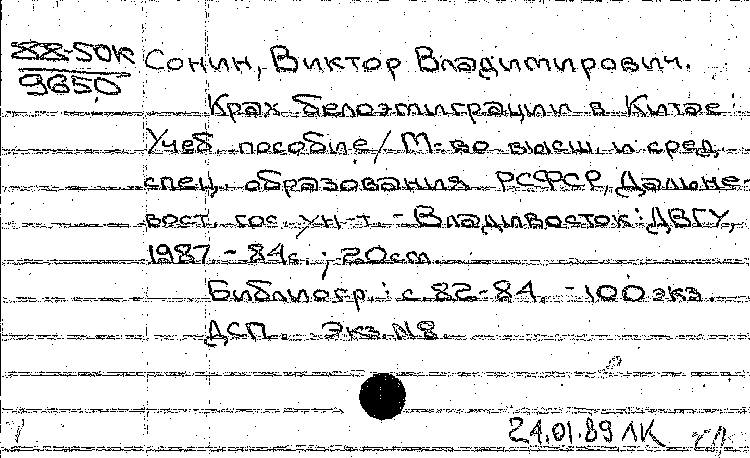 88-50К
9650
Сонин, Виктор Владимирович.
Крах белоэмиграции в Китае:
Учеб. пособие / М-во высш. и сред.
спец. образования РСФСР, Дальне-
вост. гос. ун-т. - Владивосток: ДВГУ,
1987 - 84с. ; 20см.
Библиогр.: с. 82-84. - 100 экз.
ДСП. Экз. N8
24.01.89 ЛК